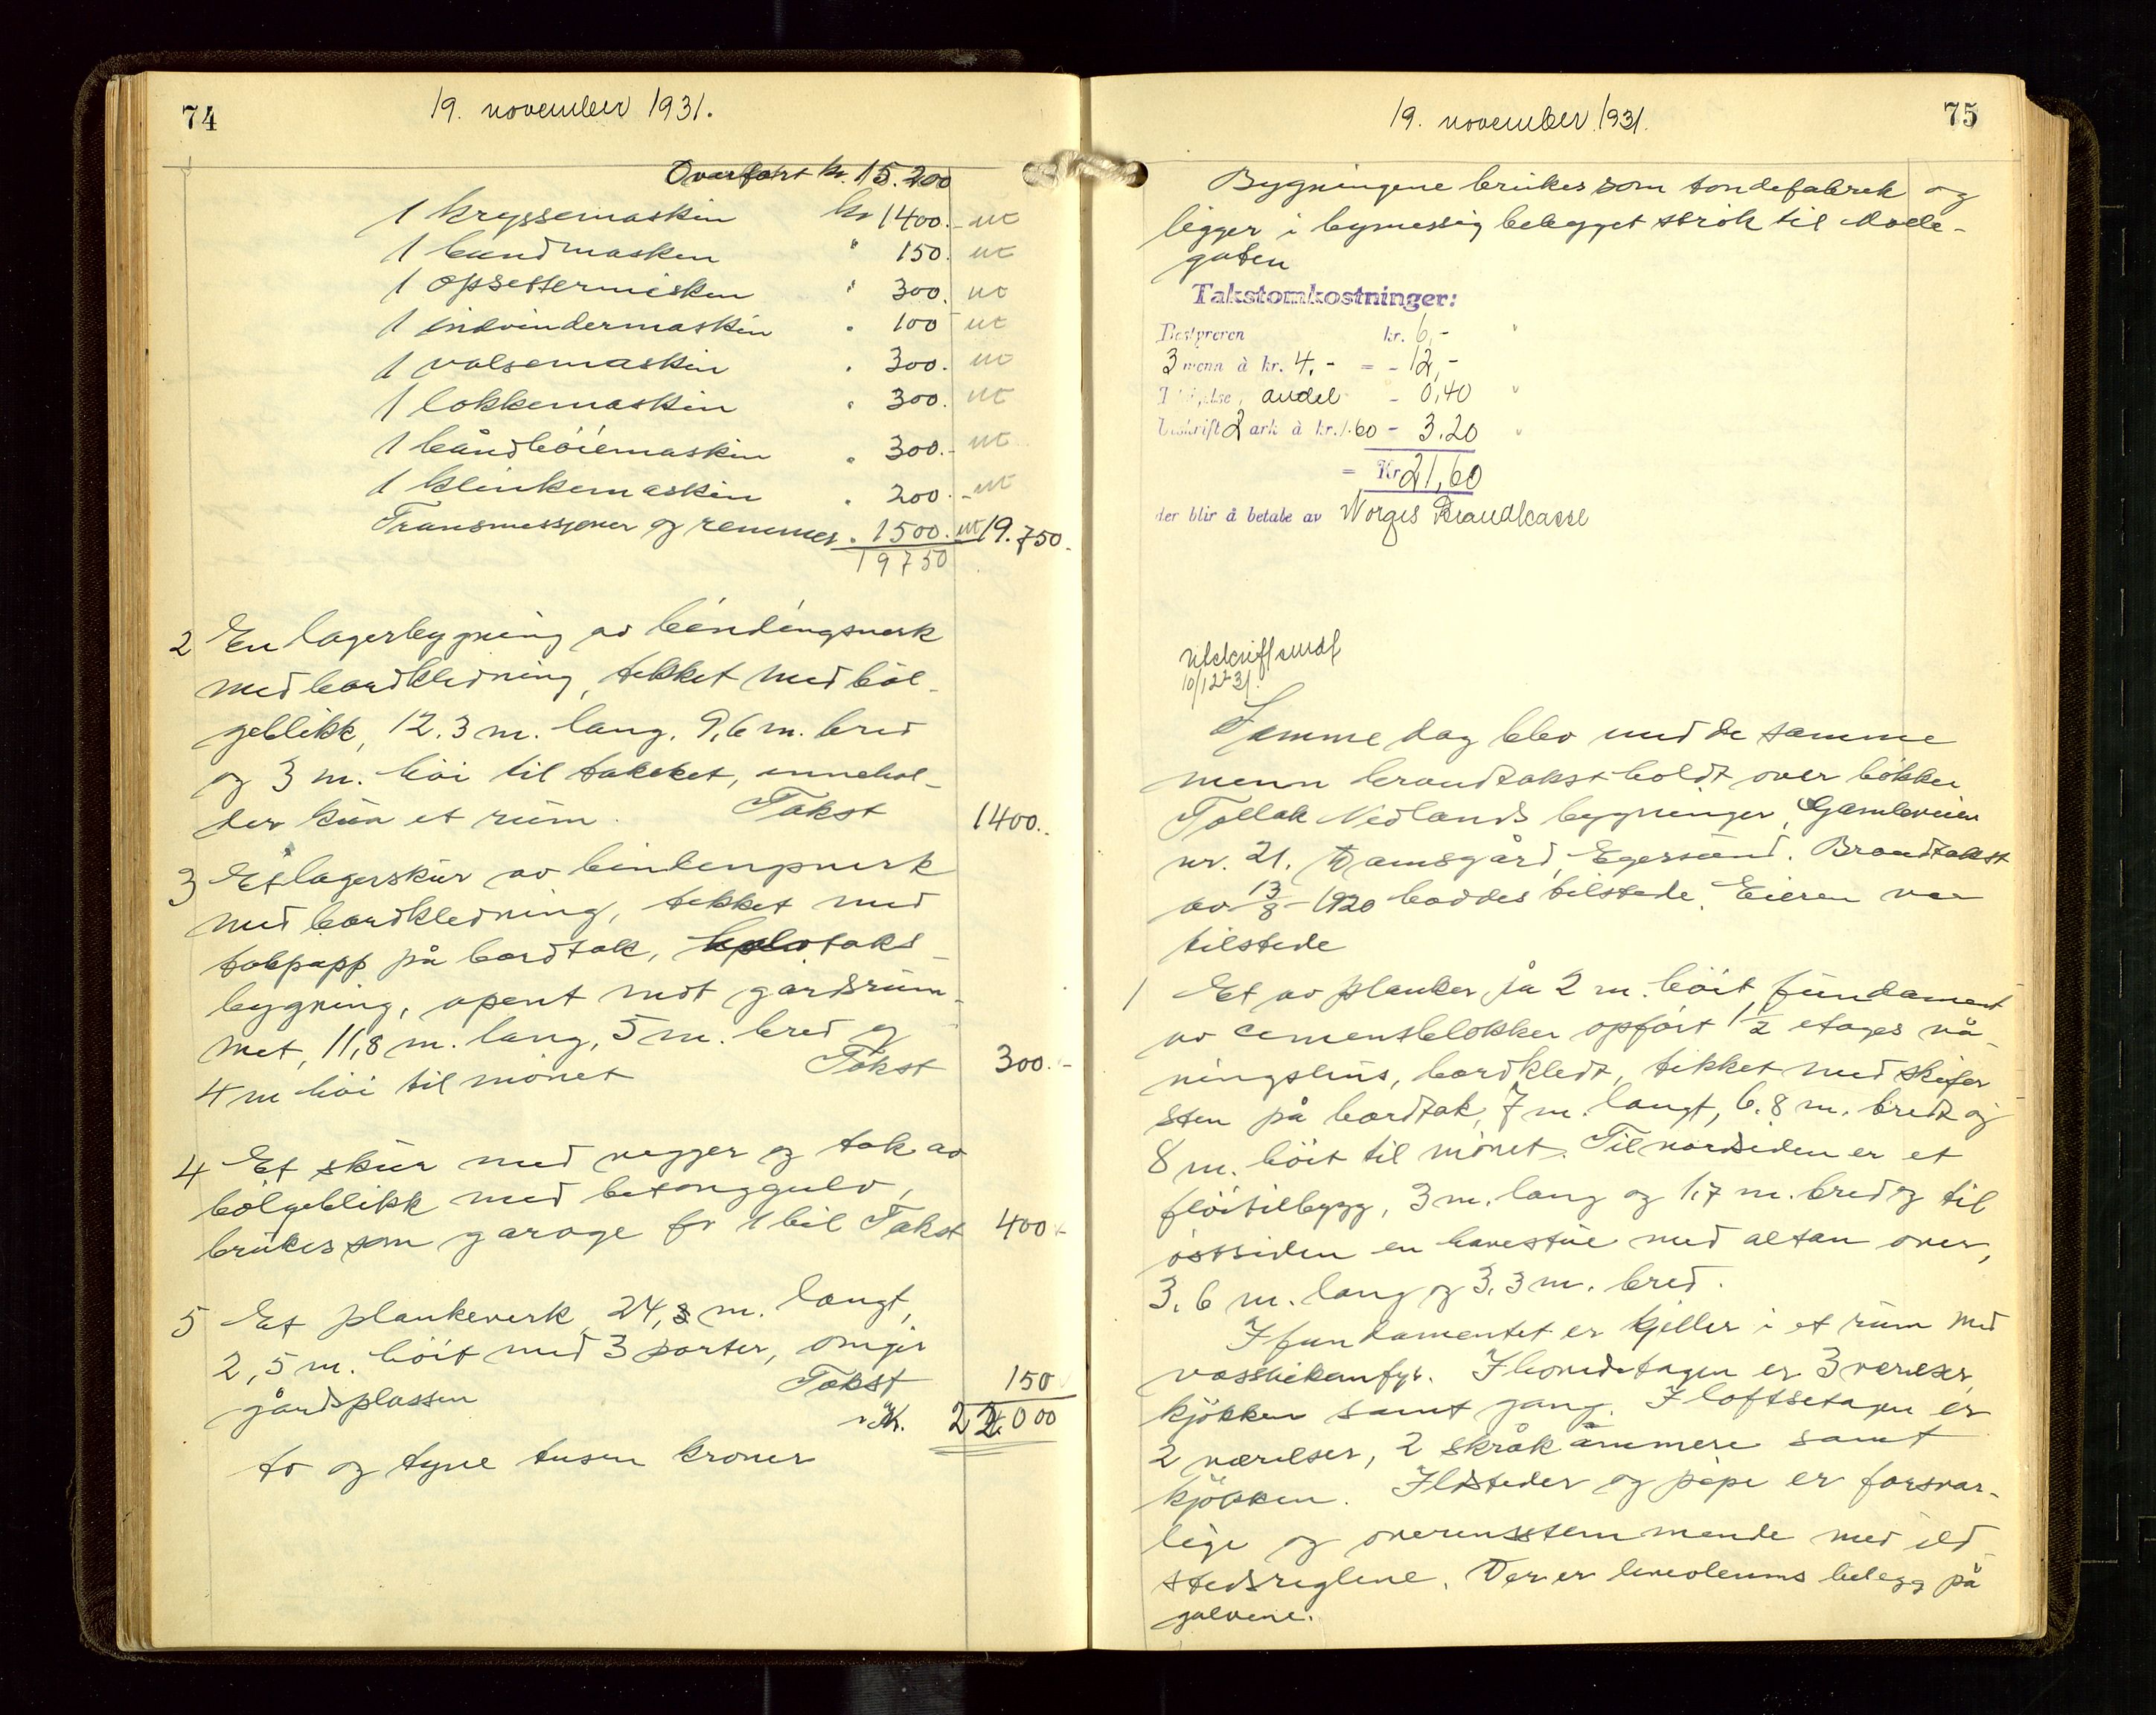 74
19. november 1931.
Overført kr. 15.200
1 kryssemaskin kr 1400.- ut
1 bundmaskin " 150. ut
1 opsettermaskin " 300. ut
1 indvindermaskin " 100 ut
1 valsemaskin " 300. ut
1 lokkemaskin " 300. ut
1 båndbøiemaskin " 300.- ut
1 klinkemaskin " 200.- ut
Transmissjoner og remmer " 1500. ut 19.750.
19750
2 En lagerbygning av bindingsverk
med bordkledning, tekket med bøl-
geblikk, 12.3 m. lang, 9,6 m. bred
og 3 m. høi til taksket, innehol-
der kun et rum. Takst 1400.-
3 Et lagerskur av bindingsverk
med bordkledning, tekket med
takpapp på bordtak, halvtaks
bygning, åpent mot gårdsrum-
met, 11,8 m. lang, 5 m. bred og
4 m høi til mønet Takst 300.-
4 Et skur med vegger og tak av
bølgeblikk med betonggulv,
brukes som garage for 1 bil Takst 400.-
5 Et plankeverk 24,3 m. langt,
2,5 m. høit med 3 porter, omgir
gårdsplassen Takst 150
Kr. 22.000
to og tyve tusen kroner
75
19. november 1931.
Bygningene brukes som tøndefabrek og
ligger i bymessig bebygget strøk til
gaten
Takstomkostninger:
Bestyreren kr. 6,-
3 menn à kr. 4.- = - 12,-
andel - 0,40
Utskrift 2 ark à kr. 1.60 - 3.20
= Kr 21,60
der blir å betale av Norges Brandkasse
Utskrift sendt
10/12 31.
Samme dag blev med de samme
menn brandtakst holdt over bøkker
Tollak Nedlands bygninger, Gamleveien
nr. 21, Damsgård, Egersund. Brandtakst
av 13/8-1920 haddes tilstede. Eieren var
tilstede
1 Et av planker på 2 m. høit fundament
av cementblokker opført 1 1/2 etages vå-
ningshus, bordkledt, tekket med skifer
sten på bordtak, 7 m. langt, 6.8 m. bredt og
8 m. høit til mønet. Til nordsiden er et
fløitilbygg, 3 m. lang og 1,7 m. bred og til
østsiden en havestue med altan over,
3,6 m. lang og 3,3 m. bred.
I fundamentet er kjeller i et rum med
vasskikamfyr. I hovedetagen er 3 værelser,
kjøkken samt gang. I loftsetagen er
2 værelser, 2 skråkammere samt
kjøkken. Ildsteder og pipe er forsvar-
lige og overensstemmende med ild-
stedsreglene. Der er linoleums belegg på
golvene.